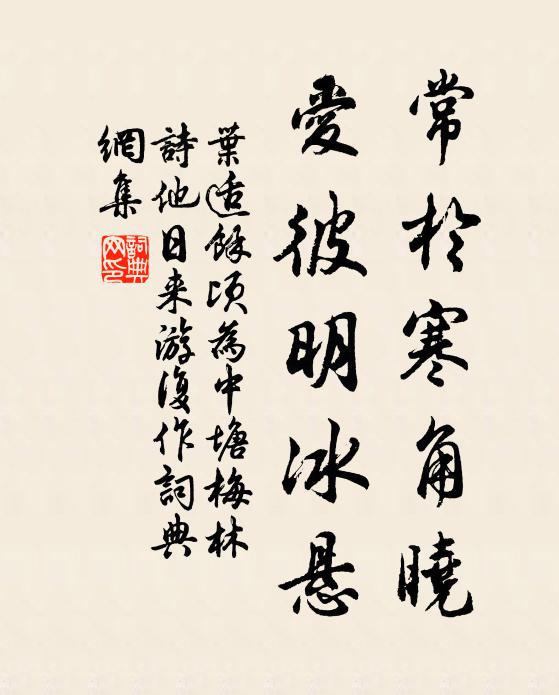 常於寒角曉
愛彼明冰懸
葉适餘頃為中塘梅林
詩他日来游復作詞典
網集
詞典网印